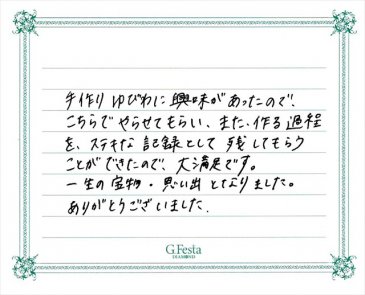 手作りゆびわに興味があったので、
こちらでやらせてもらい、また、作る過程
を、ステキな記録として残してもらう
ことができたので、大満足です。
一生の宝物・思い出となりました。
ありがとうございました.
G.Festa
DIAMOND